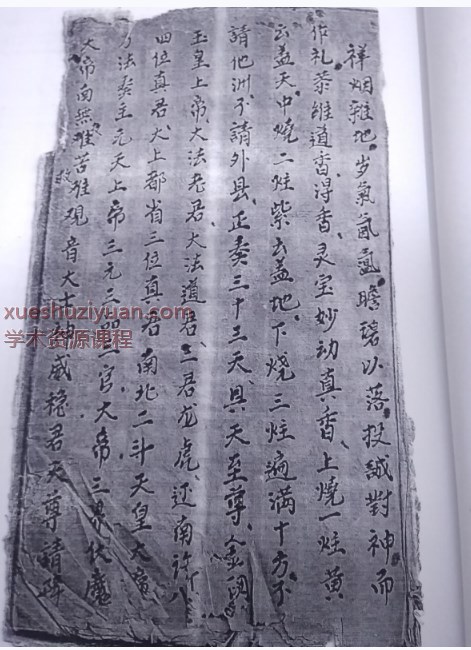 祥烟雜地岁氣氤氳瞻碧以落投誠對神而
作礼恭維道香淂香灵宝妙动真香上燒一炷黄
云盖天中燒二炷紫云盖地下烧三炷遍满十方不
請他洲不請外县正奏三十三天具天至尊金阙
玉皇上帝大法老君大法道君二君龙虎还南許八
四位真君大上都省三位真君南北二斗天皇大帝
法奏主元天上帝三元三品三官大帝三界伏魔
大帝南無救苦难观音大士威稳君天尊請降
xueshuziyuan.com
学术资源课程